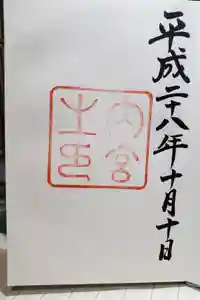 平成二十八年十月十日
内宮
之印